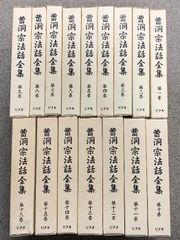 曹洞宗法話全集 第一巻 ピタカ
曹洞宗法話全集 第二巻 ピタカ
曹洞宗法話全集 第三巻 ピタカ
曹洞宗法話全集 第四巻 ピタカ
曹洞宗法話全集 第五巻 ピタカ
曹洞宗法話全集 第六巻 ピタカ
曹洞宗法話全集 第七巻 ピタカ
曹洞宗法話全集 第八巻 ピタカ
曹洞宗法話全集 第九巻 ピタカ
曹洞宗法話全集 第十巻 ピタカ
曹洞宗法話全集 第十一巻 ピタカ
曹洞宗法話全集 第十二巻 ピタカ
曹洞宗法話全集 第十三巻 ピタカ
曹洞宗法話全集 第十四巻 ピタカ
曹洞宗法話全集 ピタカ
曹洞宗法話全集 ピタカ